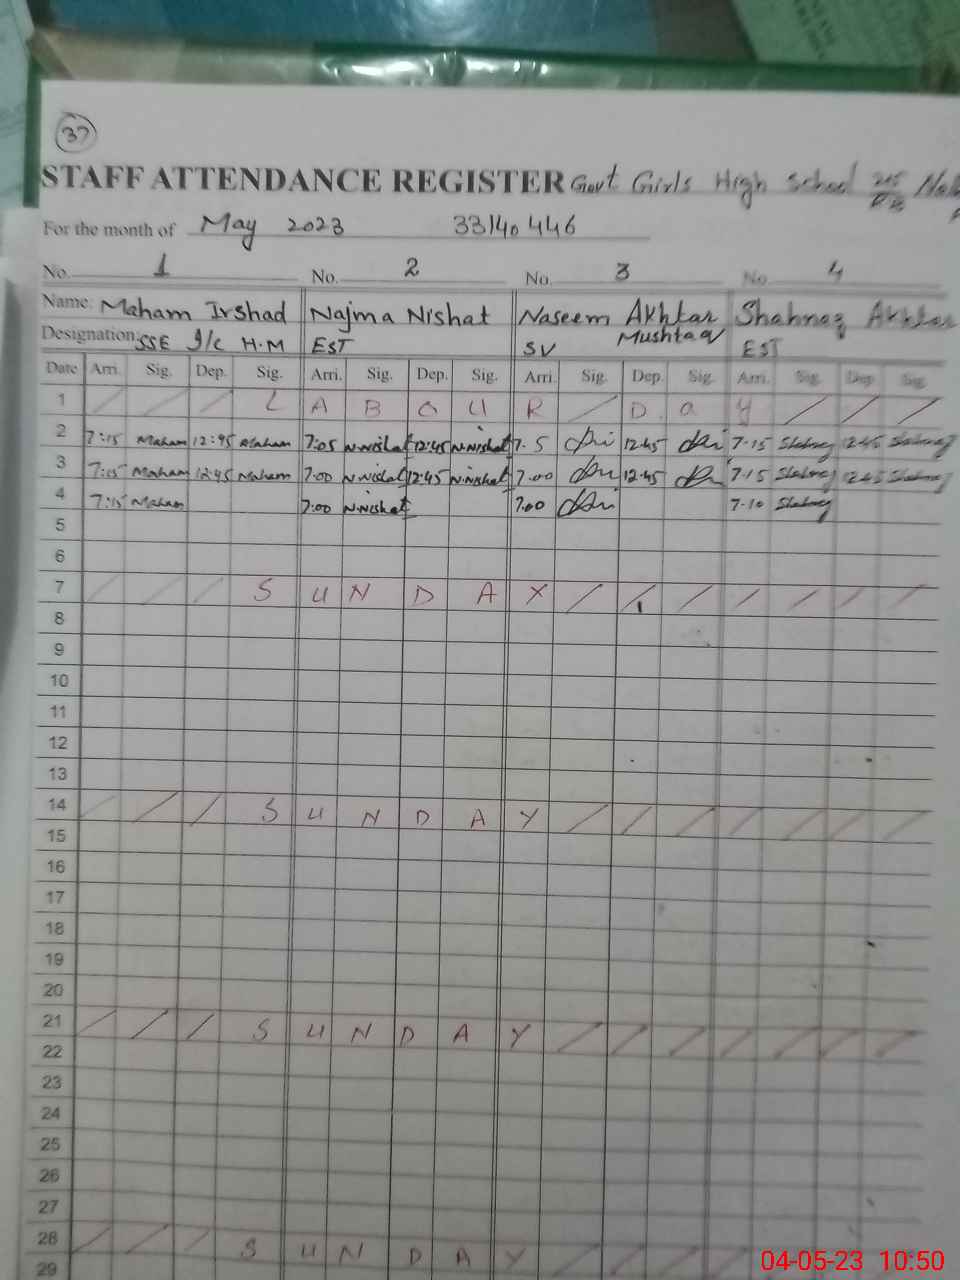 37
STAFF ATTENDANCE REGISTER Govt Girls High School
For the month of May 2023 33140446
No. 1 No. 2 No. 3 No. 4
Name: Maham Irshad Najma Nishat Naseem Akhtar Shahnaz Akhtar
Designation: SSE I/c H.M EST SV Mushtaq EST
Date Arri. Sig. Dep. Sig. Arri. Sig. Dep. Sig. Arri. Sig. Dep. Sig. Arri. Sig. Dep. Sig.
1 / / / L A B O U R / D. a y / / /
2 7:15 Maham 12:45 Maham 7:05 N.Nishat 12:45 N.Nishat 7.5 12:45 7-15 Shahnaz 12:45 Shahnaz
3 7:15 Maham 12:45 Maham 7:00 N.Nishat 12:45 N.Nishat 7:00 12:45 7:15 Shahnaz 12:45 Shahnaz
4 7:15 Maham 7:00 N.Nishat 7:00 7-10 Shahnaz
5
6
7 / / / S U N D A Y / / / / / / /
8
9
10
11
12
13
14 / / / S U N D A Y / / / / / / /
15
16
17
18
19
20
21 / / / S U N D A Y / / / / / / /
22
23
24
25
26
27
28 / / / S U N D A Y / / / / / / /
29
04-05-23 10:50